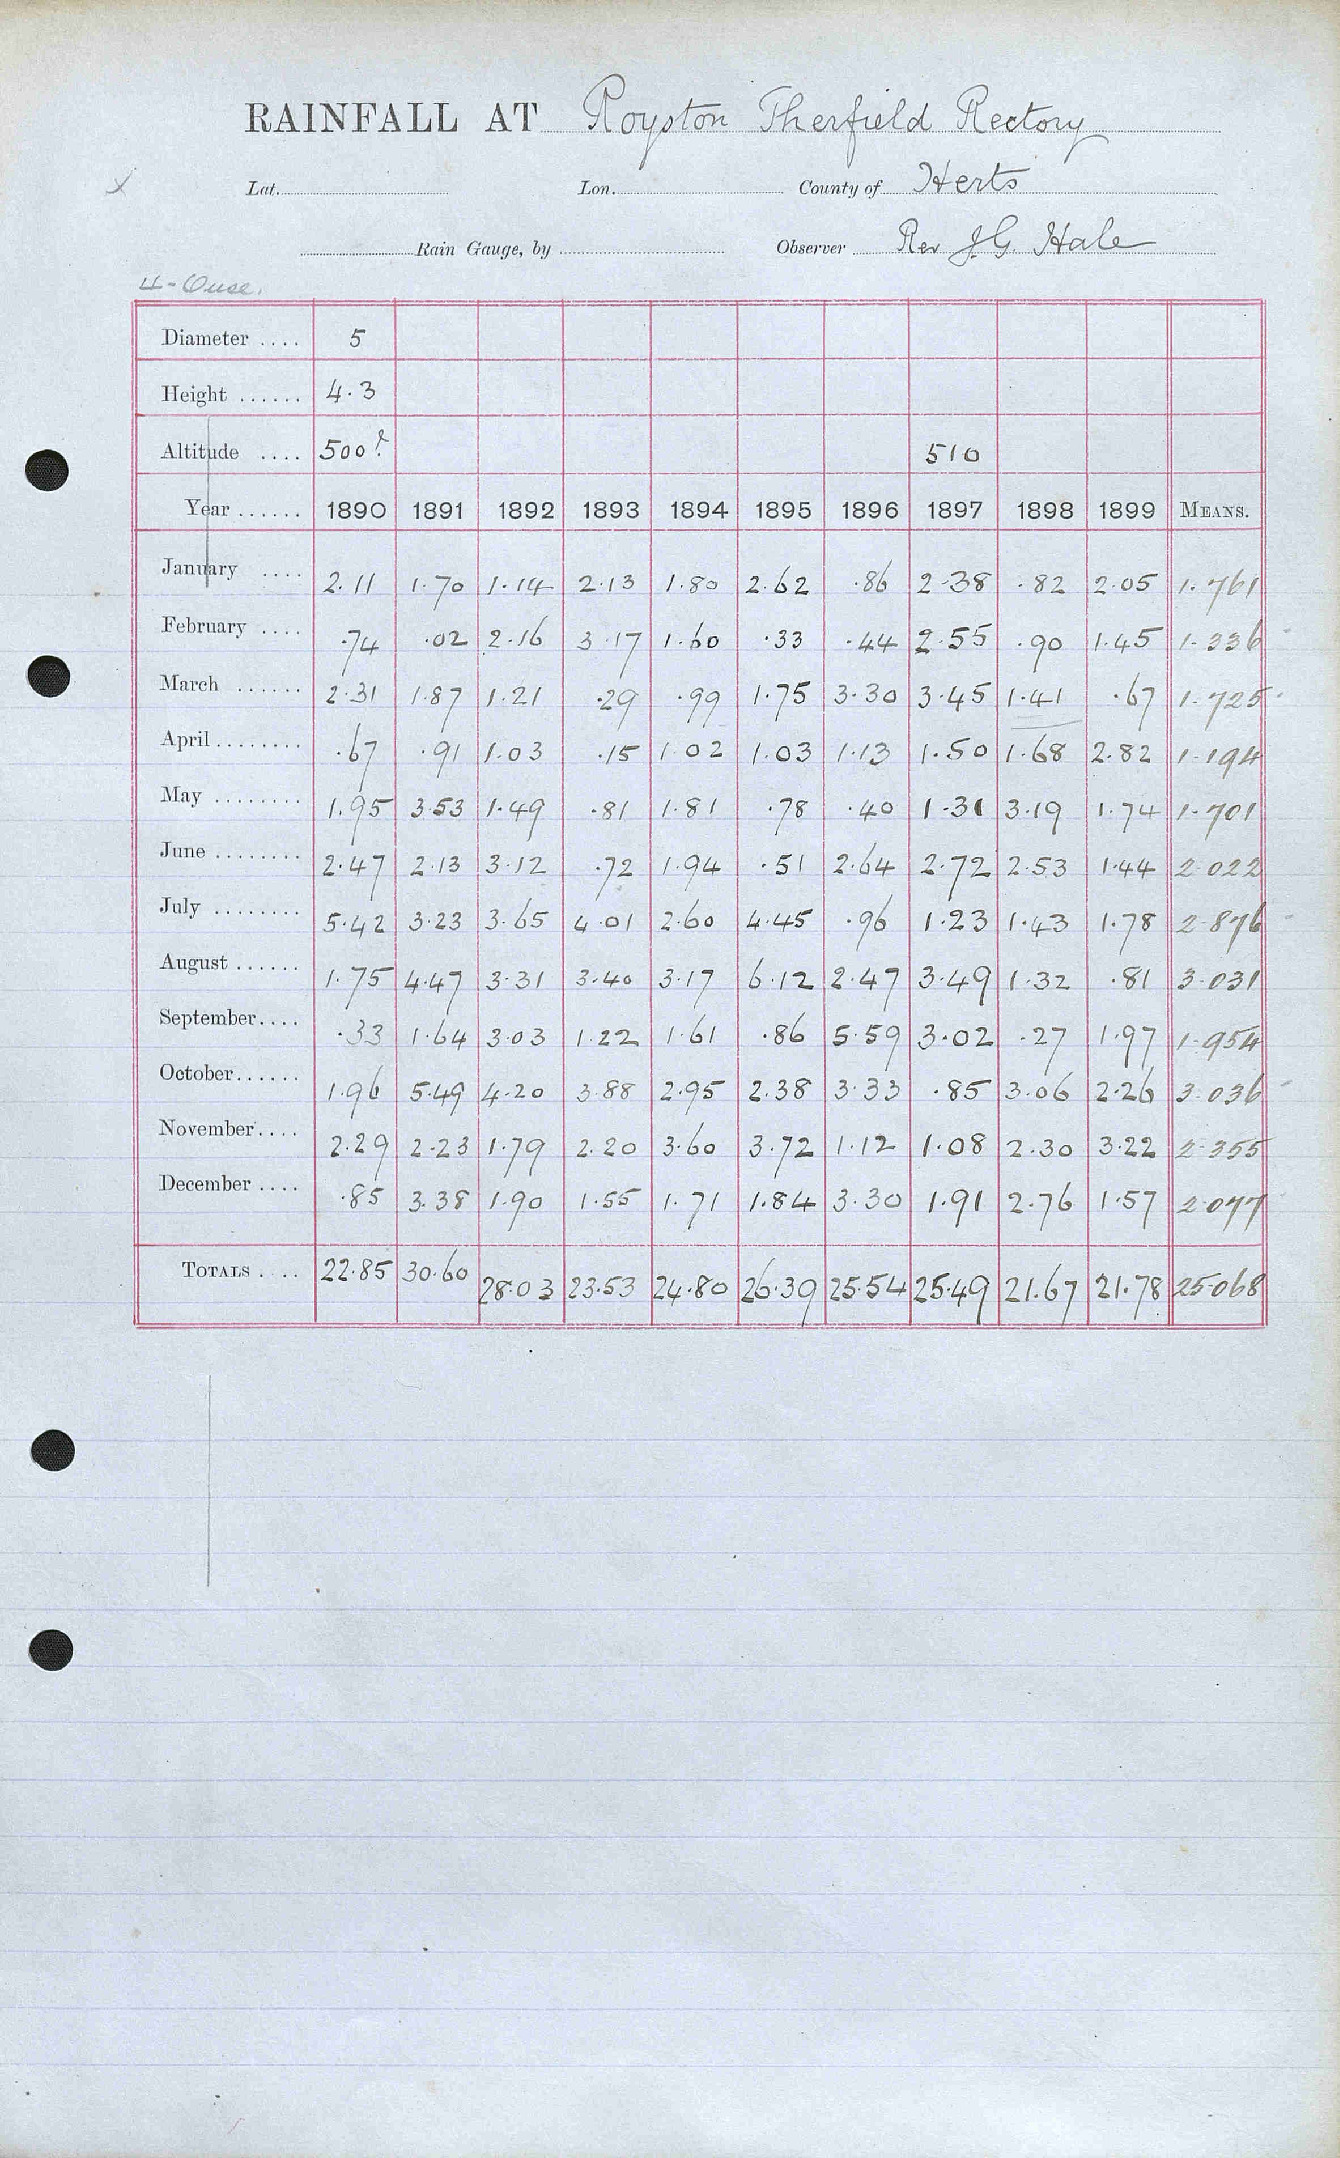 RAINFALL AT Royston Therfield Rectory
Lat. Lon. County of Herts
Rain Gauge, by Observer Rev J.G. Hale
4-Ouse.
Diameter .... 5
Height ...... 4.3
Altitude .... 500? 510
Year ...... 1890 1891 1892 1893 1894 1895 1896 1897 1898 1899 MEANS.
January .... 2.11 1.70 1.14 2.13 1.80 2.62 .86 2.38 .82 2.05 1.761
February .... .74 .02 2.16 3.17 1.60 .33 .44 2.55 .90 1.45 1.336
March ...... 2.31 1.87 1.21 .29 .99 1.75 3.30 3.45 1.41 .67 1.725
April ........ .67 .91 1.03 .15 1.02 1.03 1.13 1.50 1.68 2.82 1.194
May ........ 1.95 3.53 1.49 .81 1.81 .78 .40 1.31 3.19 1.74 1.701
June ........ 2.47 2.13 3.12 .72 1.94 .51 2.64 2.72 2.53 1.44 2.022
July ........ 5.42 3.23 3.65 4.01 2.60 4.45 .96 1.23 1.43 1.78 2.876
August ...... 1.75 4.47 3.31 3.40 3.17 6.12 2.47 3.49 1.32 .81 3.031
September.... .33 1.64 3.03 1.22 1.61 .86 5.59 3.02 .27 1.97 1.954
October...... 1.96 5.49 4.20 3.88 2.95 2.38 3.33 .85 3.06 2.26 3.036
November.... 2.29 2.23 1.79 2.20 3.60 3.72 1.12 1.08 2.30 3.22 2.355
December .... .85 3.38 1.90 1.55 1.71 1.84 3.30 1.91 2.76 1.57 2.077
TOTALS .... 22.85 30.60 28.03 23.53 24.80 26.39 25.54 25.49 21.67 21.78 25.068